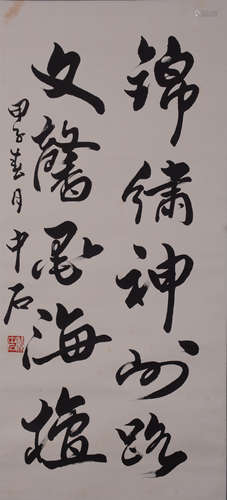 锦绣神州路
文馨墨海坛
甲子春月中石